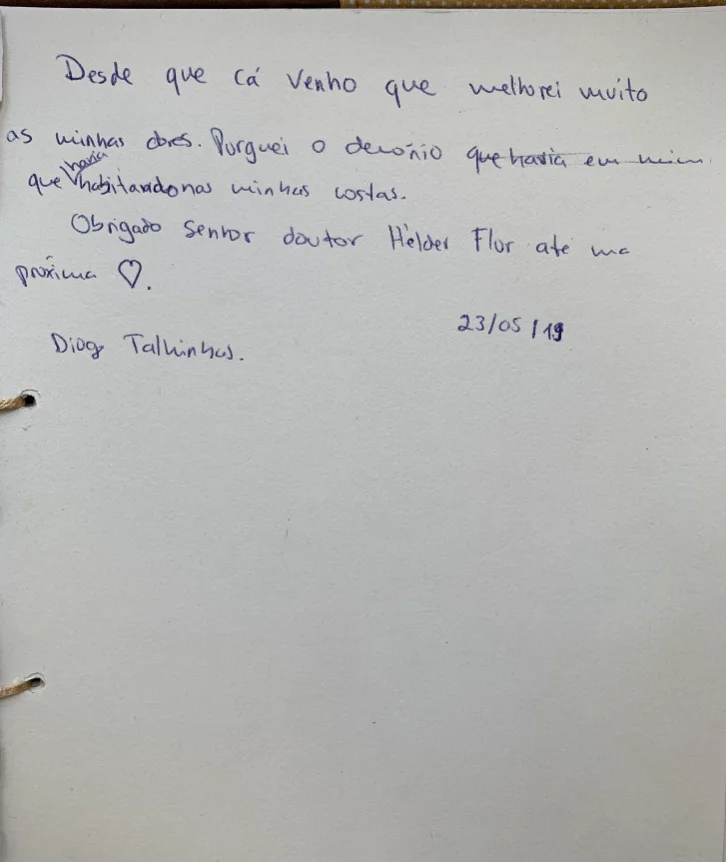 Desde que cá venho que melhorei muito
as minhas dores. Purguei o demónio que havia em mim
que havia habitando nas minhas costas.
Obrigado Senhor doutor Hélder Flor até uma
próxima ♡.
23/05/19
Diogo Talhinhas.